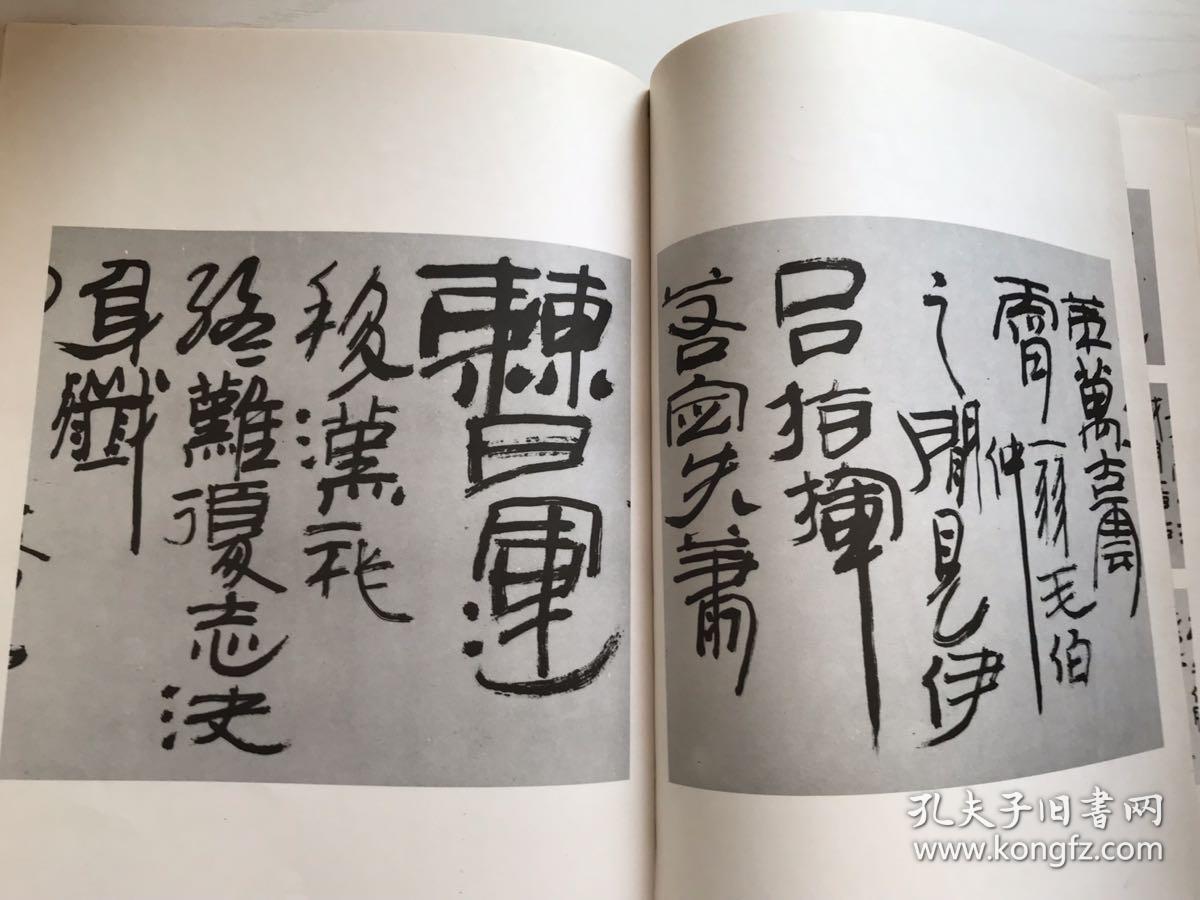 策萬古雲
霄一羽毛伯
仲
之間見伊
呂指揮
若定失蕭
曹運
移漢祚
終難復志決
身殲
孔夫子旧书网
www.kongfz.com